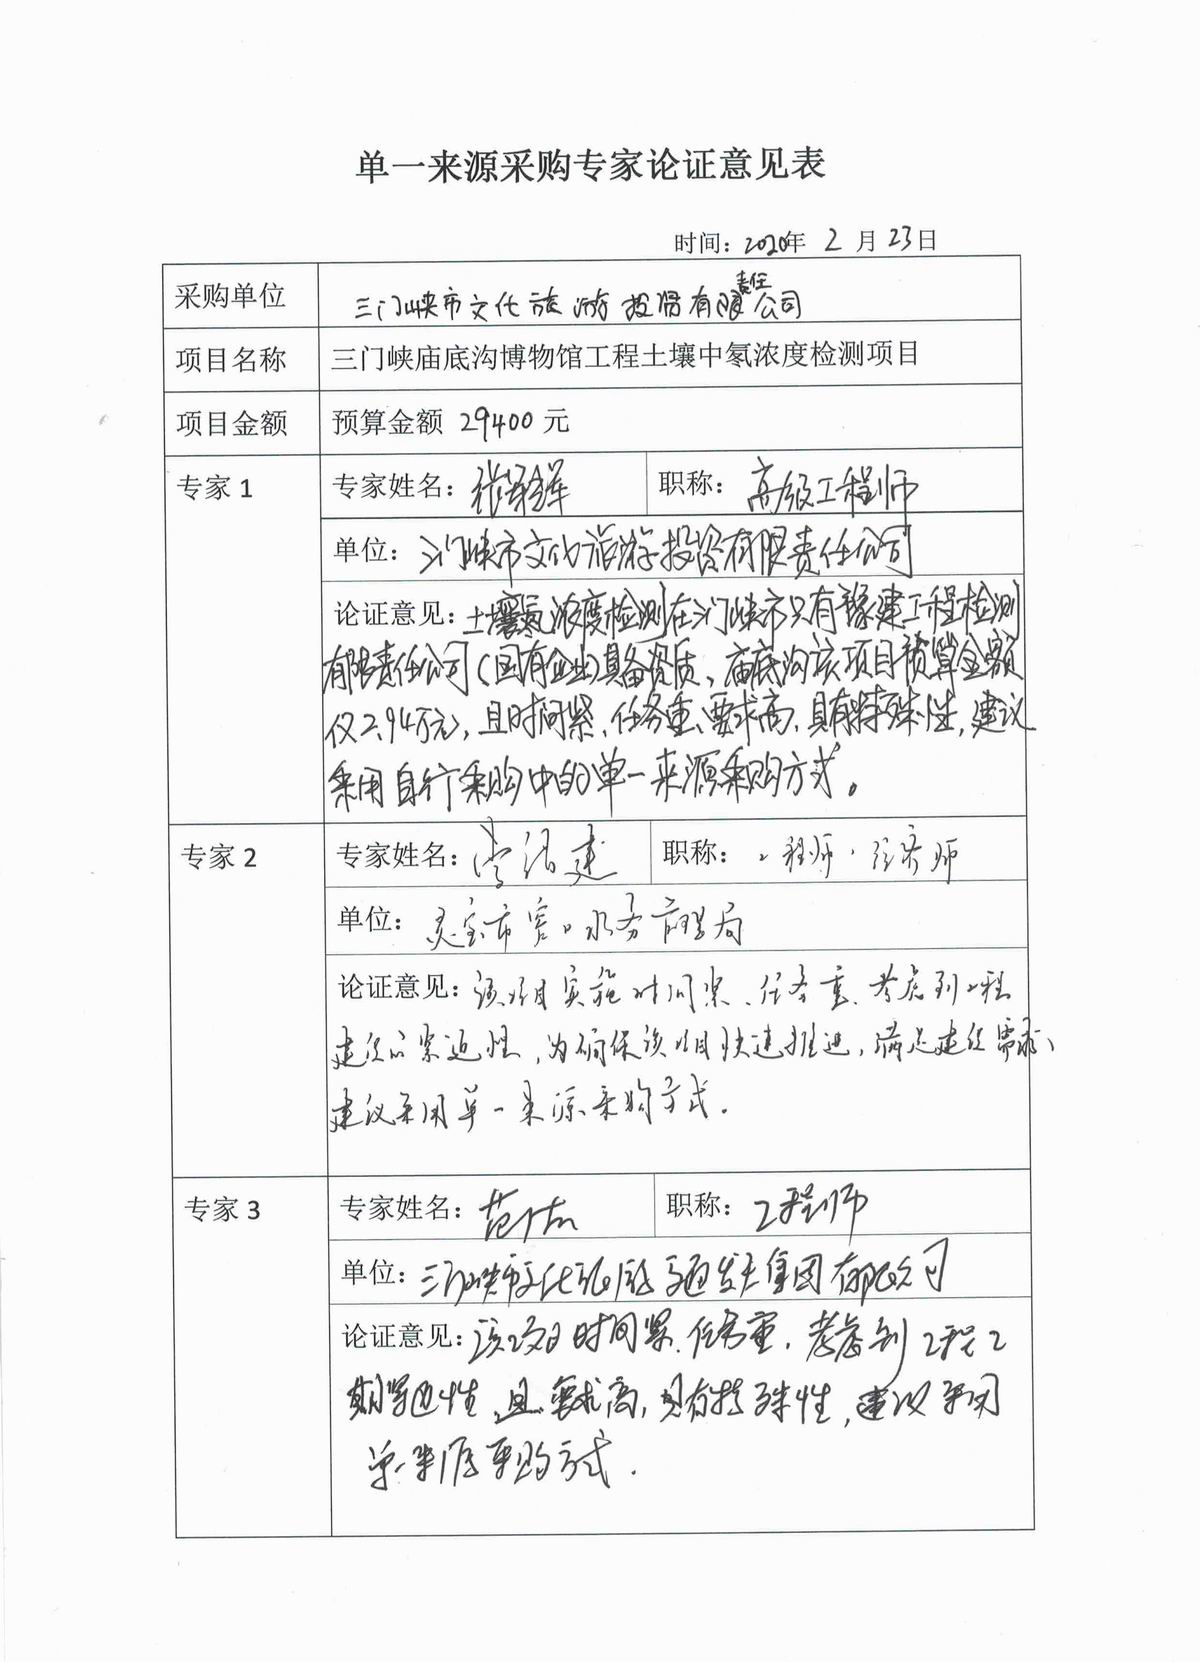 单一来源采购专家论证意见表
时间：2020年 2 月 23日
采购单位
三门峡市文化旅游投资有限责任公司
项目名称
三门峡庙底沟博物馆工程土壤中氡浓度检测项目
项目金额
预算金额 29400 元
专家 1
专家姓名：
职称：高级工程师
单位：三门峡市文化旅游投资有限责任公司
论证意见：土壤氡浓度检测在三门峡市只有豫建工程检测
有限责任公司(国有企业)具备资质、庙底沟该项目预算金额
仅2.94万元，且时间紧、任务重、要求高，具有特殊性，建议
采用自行采购中的单一来源采购方式。
专家 2
专家姓名：
职称：工程师、经济师
单位：灵宝市窄口水务管理局
论证意见：该项目实施时间紧、任务重、考虑到工程
建设的紧迫性，为确保该项目快速推进，满足建设需求、
建议采用单一来源采购方式.
专家 3
专家姓名：
职称：工程师
单位：三门峡市文化旅游 发展集团有限公司
论证意见：该项目时间紧、任务重，考虑到工程工
期紧迫性，且要求高，具有特殊性，建议采用
单一来源采购方式.